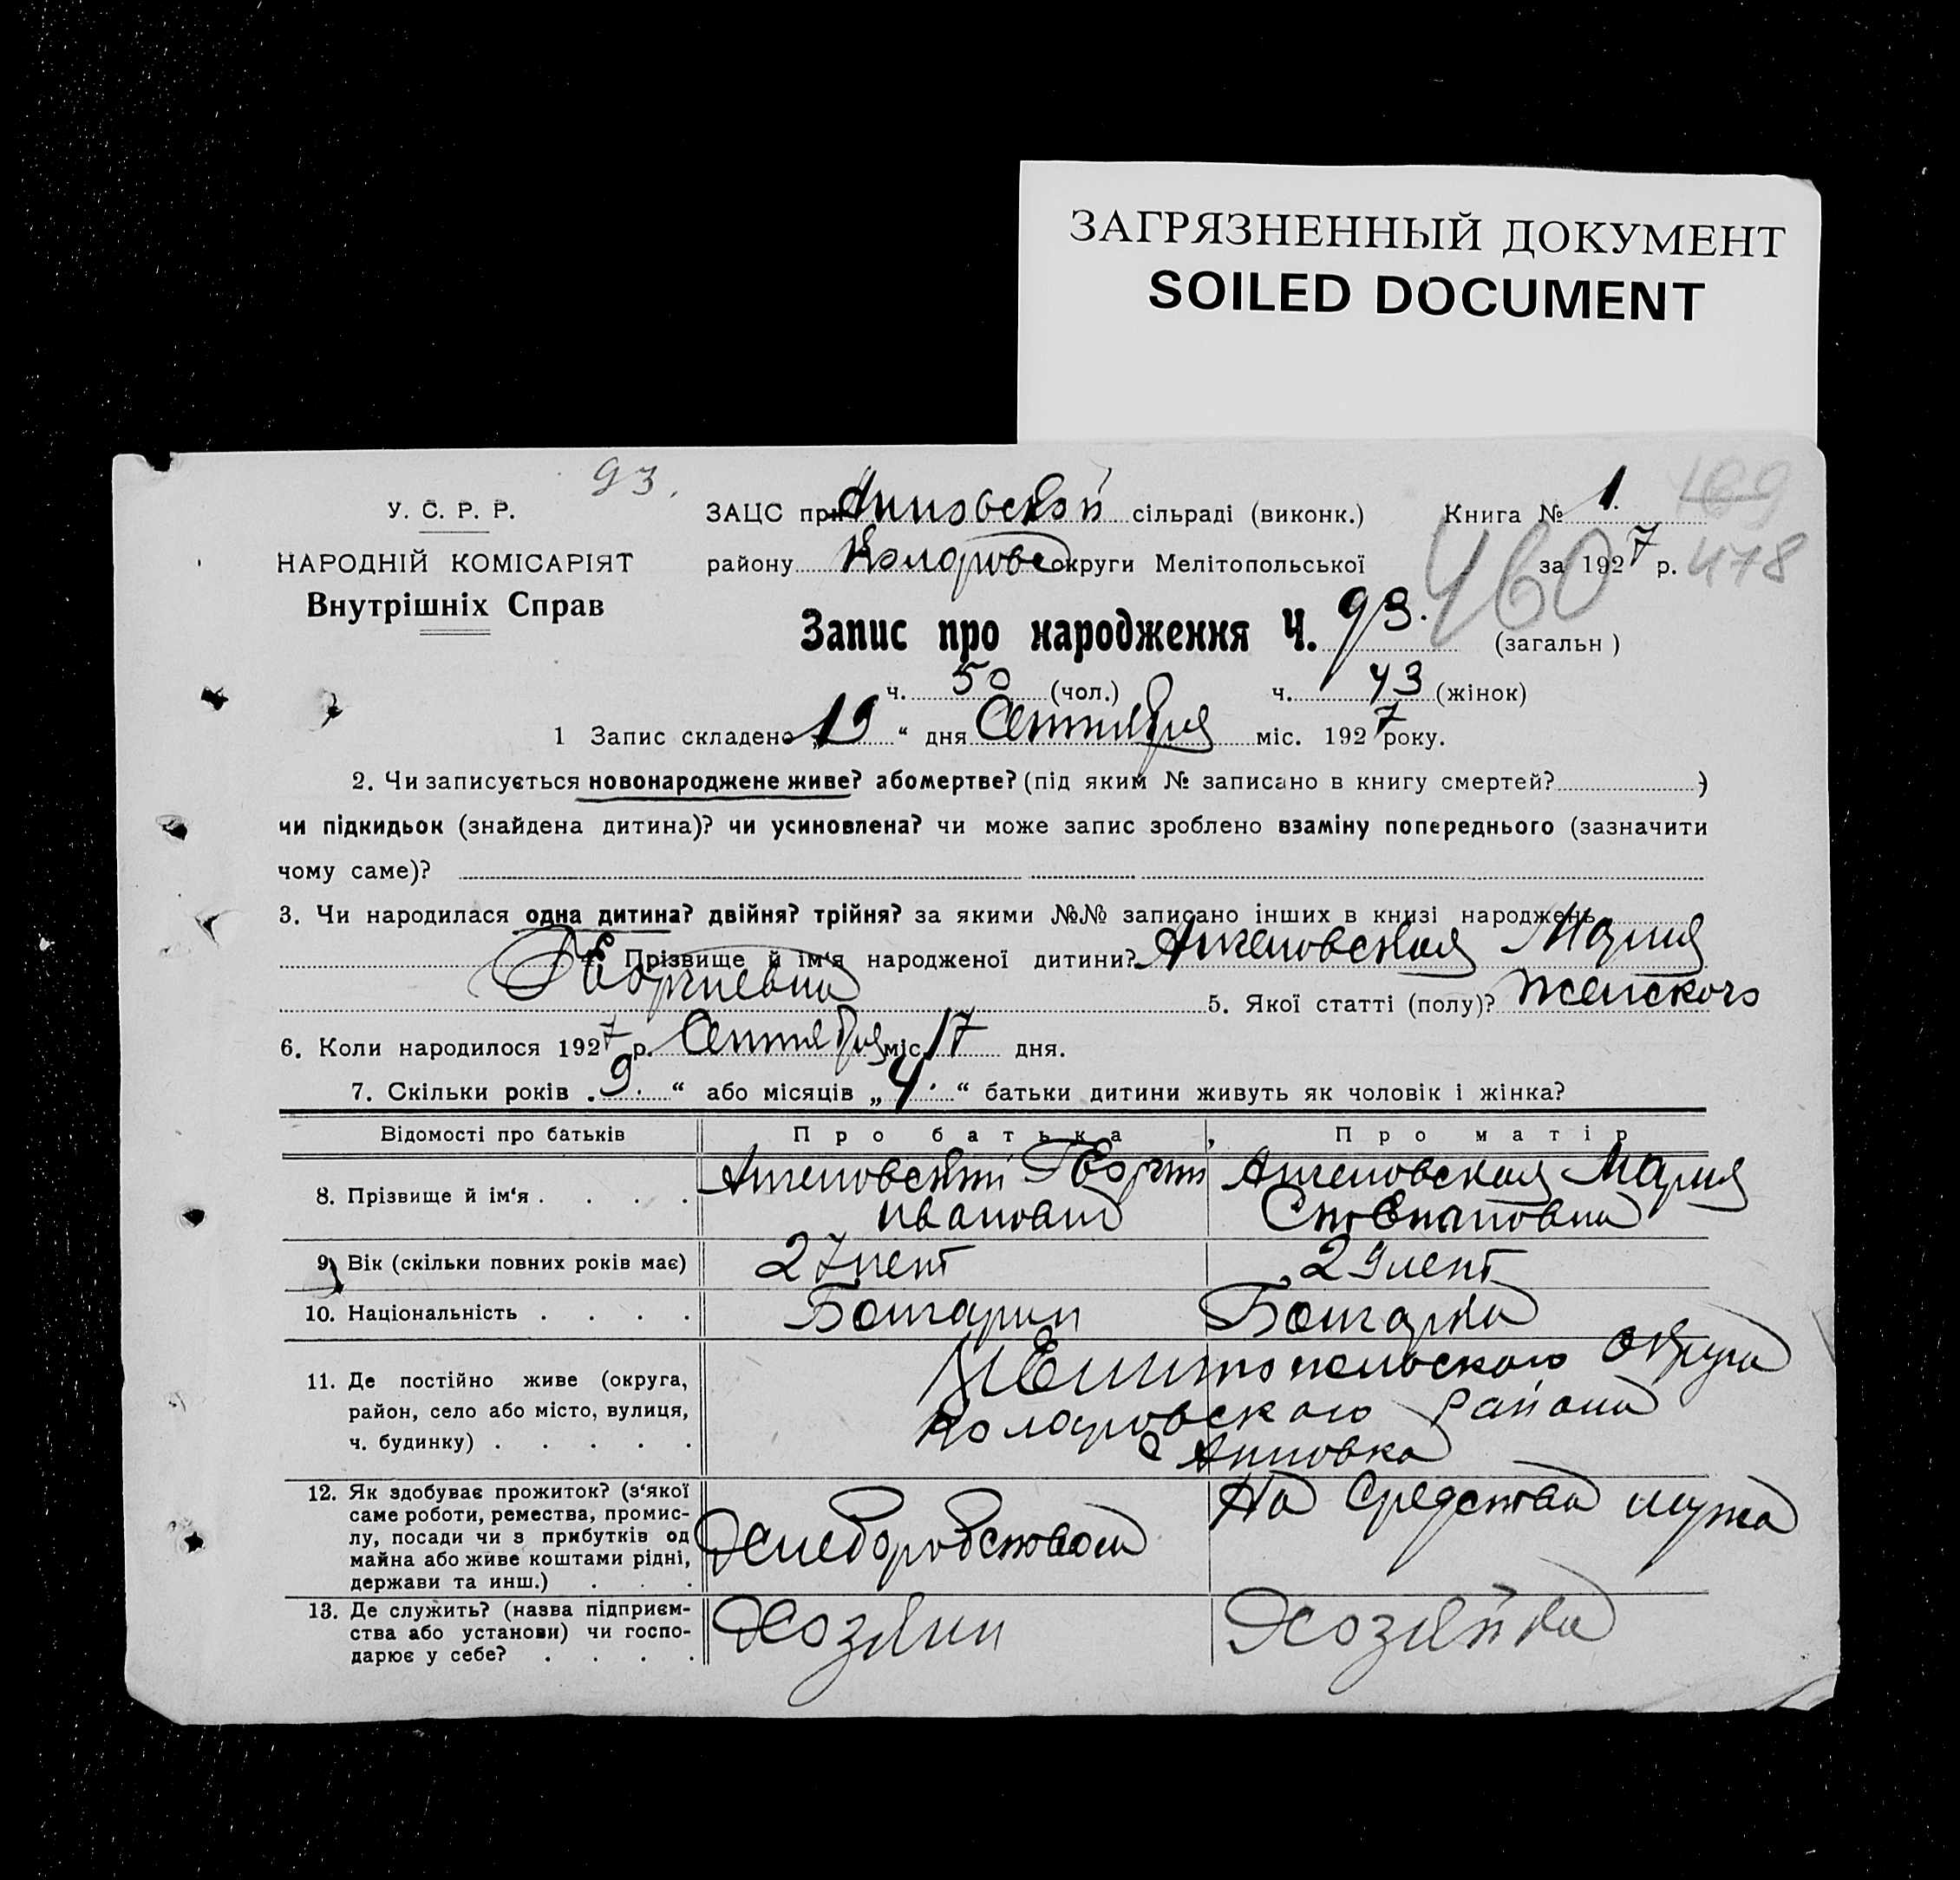 ЗАГРЯЗНЕННЫЙ ДОКУМЕНТ
SOILED DOCUMENT
93.
У. С. Р. Р.
НАРОДНІЙ КОМІСАРІЯТ
Внутрішніх Справ
ЗАЦС при Анновской сільраді (виконк.) Книга № 1. 169
району Коларовс округи Мелітопольської за 1927 р. 478
460
Запис про народження Ч. 93. (загальн )
ч. 50 (чол.) ч. 43 (жінок)
1 Запис складено „19“ дня Сентября міс. 1927 року.
2. Чи записується новонароджене живе? або мертве? (під яким № записано в книгу смертей? )
чи підкидьок (знайдена дитина)? чи усиновлена? чи може запис зроблено взаміну попереднього (зазначити
чому саме)?
3. Чи народилася одна дитина? двійня? трійня? за якими №№ записано інших в книзі народжень
Прізвище й ім‘я народженої дитини? Ангеловская Мария
Георгиевна 5. Якої статті (полу)? женского
6. Коли народилося 1927 р. Сентября міс. 17 дня.
7. Скільки років „ 9. “ або місяців „ 4. “ батьки дитини живуть як чоловік і жінка?
Відомості про батьків Про батька Про матір
8. Прізвище й ім‘я . . . . Ангеловский Георгий Ангеловская Мария
Иванович Степановна
9. Вік (скільки повних років має) 27 лет 29 лет
10. Національність . . . . Болгарин Болгарка
11. Де постійно живе (округа,
район, село або місто, вулиця,
ч. будинку) . . . . .
Мелитопольского округа
Коларовского района
с Анновка
12. Як здобуває прожиток? (з‘якої
саме роботи, ремества, промис-
лу, посади чи з прибутків од
майна або живе коштами рідні,
держави та инш.) . . .
Хлебородством На средства мужа
13. Де служить? (назва підприєм-
ства або установи) чи госпо-
дарює у себе? . . . .
Хозяин Хозяйка